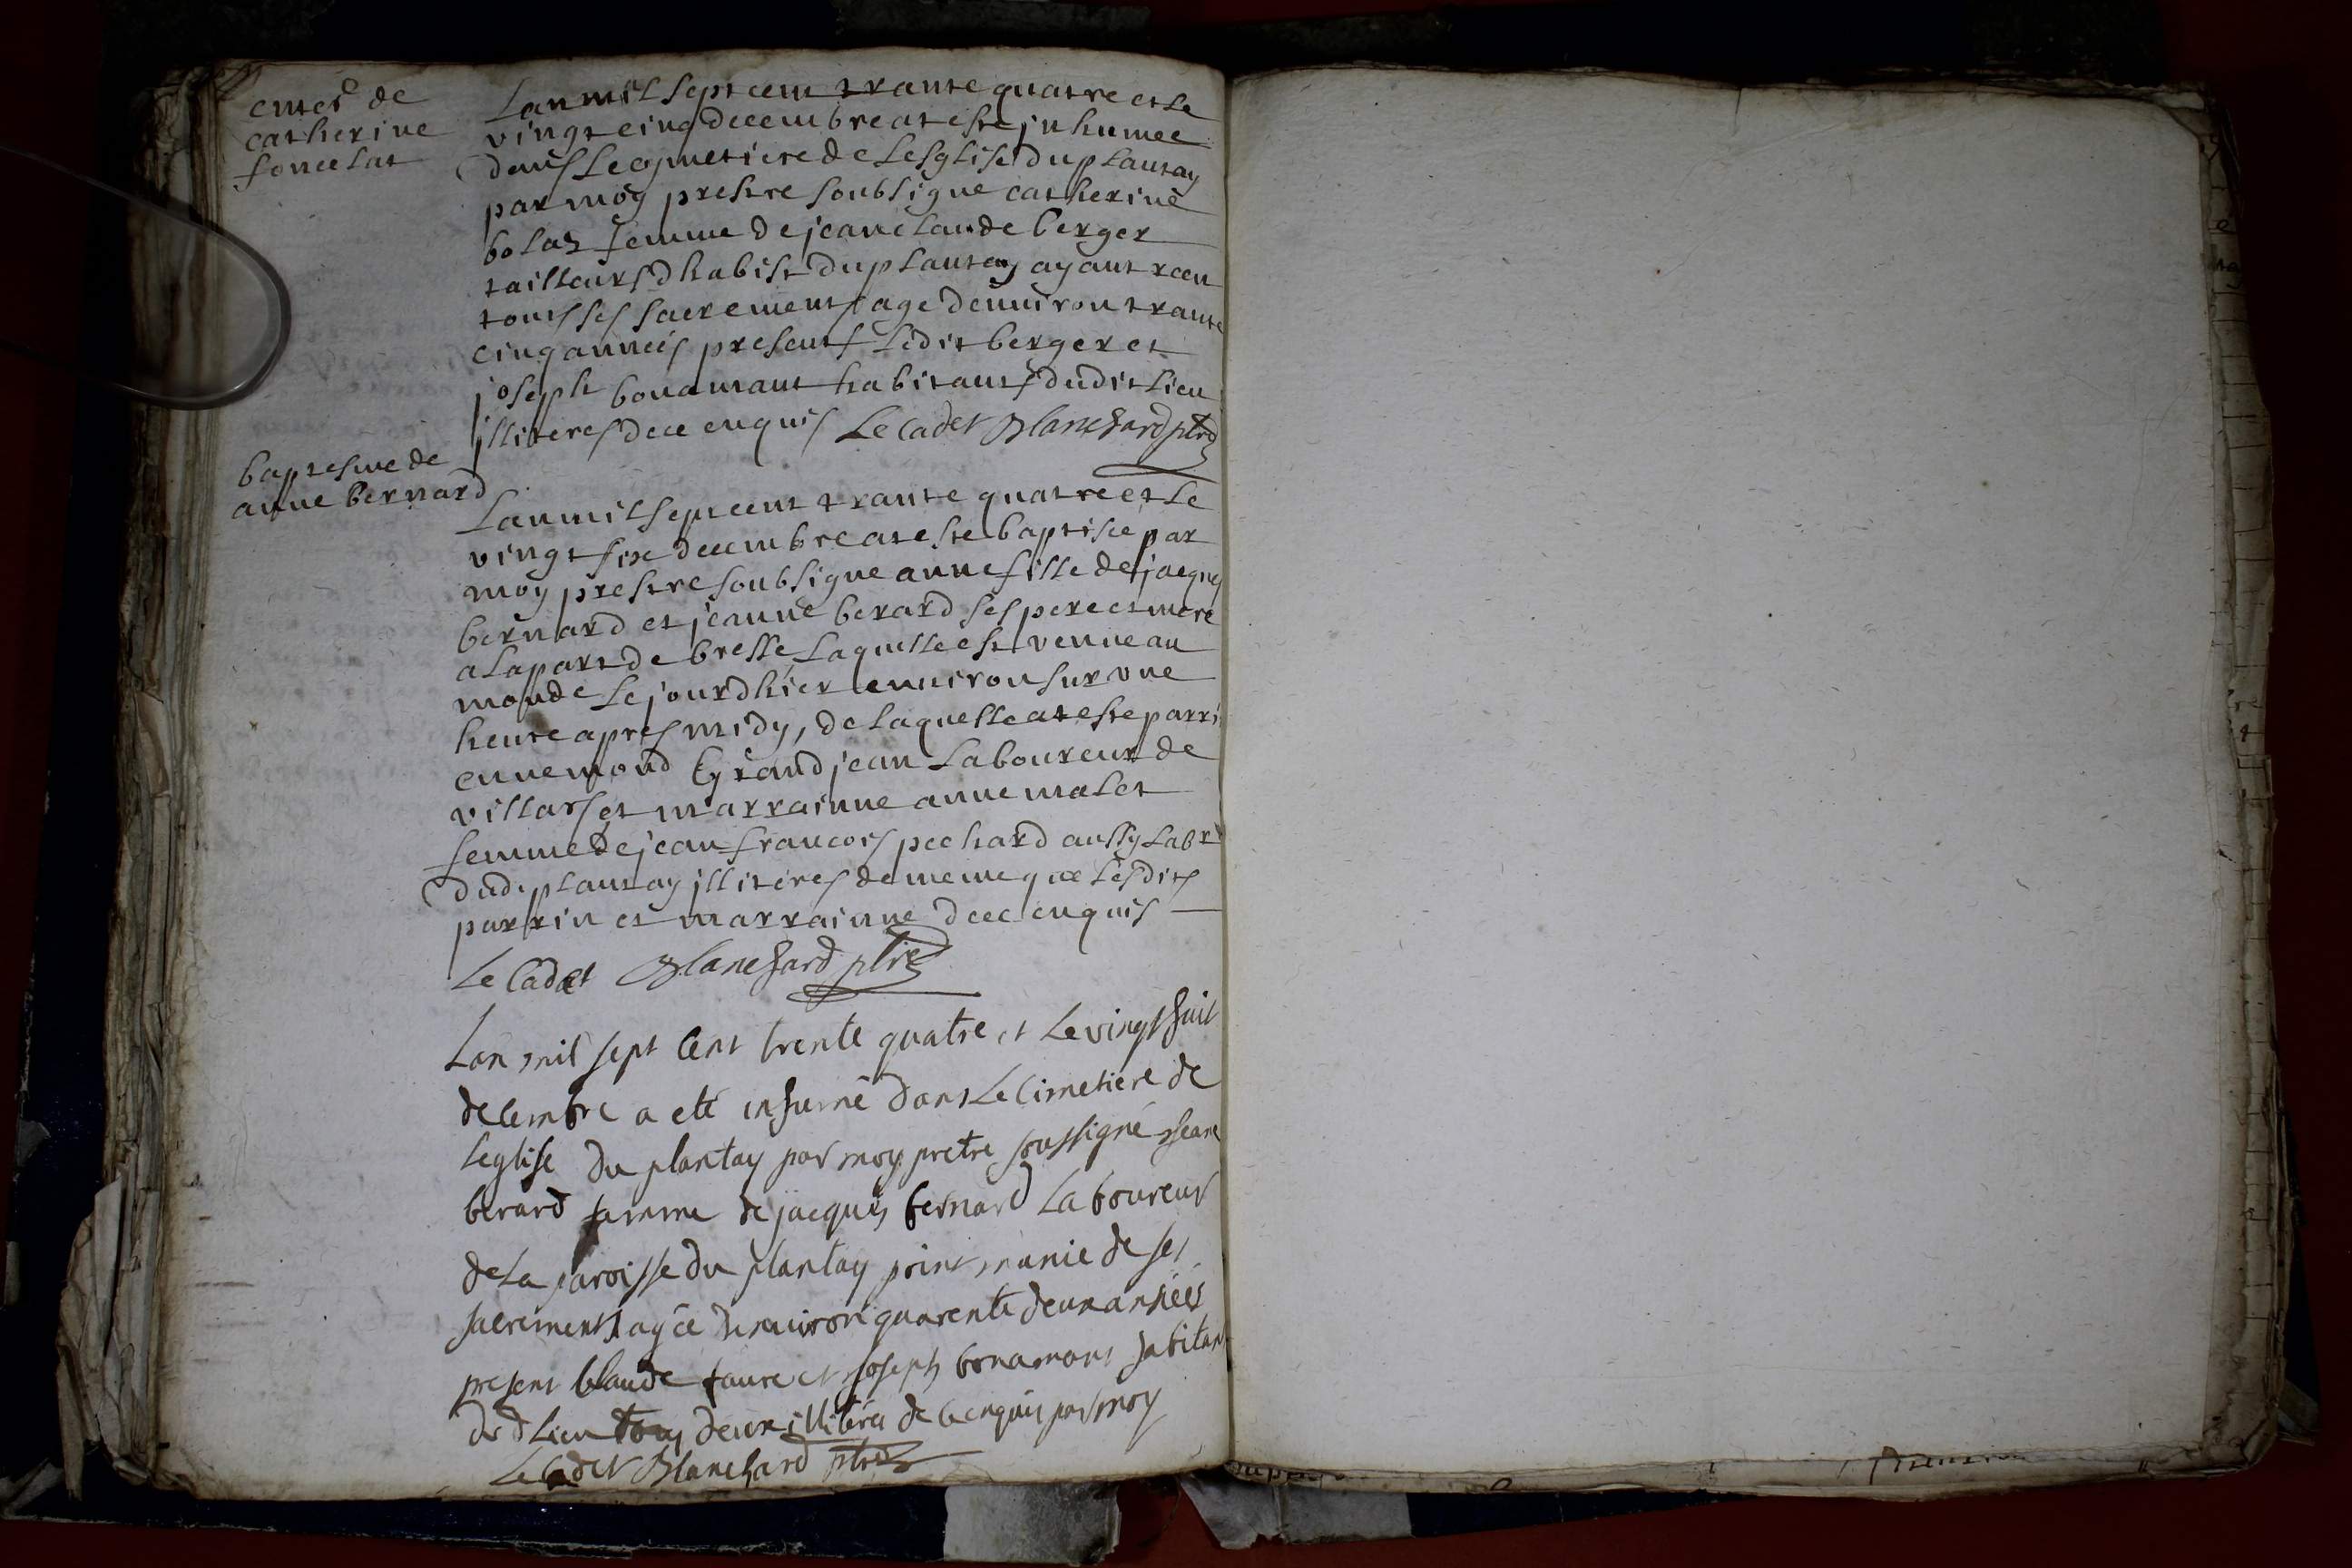 enter de
catherine
foncelat
Lan mil sept cent trante quatre et le
vingt cinq decembre at este jnhumee
dans le cymetiere de lesglise du plantay
par moy prestre soubsigne catherine
bolaz femme de jean claude berger
tailleurs dhabist du plantay ayant rceu
tous ses sacrements age denuiron trante
cinq années presents ledit berger et
joseph bonamant habitants dudit lieu
jlliteres de ce enquis Le Cadet Blanchard ptre
baptesme de
anne bernard
Lan mil sept cent trante quatre et le
vingt six decembre at este baptisée par
moy prestre soubsigne anne fille de jacques
bernard et jeanne berard ses pere et mere
a la part de bresse laquelle est venue au
monde le jourdhier enuiron sur une
heure apres midy, de laquelle at este parri
ennemond Grand jean laboureur de
villars et marrainne anne malet
femme de jean francois pechard aussy labr
dud. plantay jlliteres de meme que lesdits
parrin et marrainne de ce enquis
Le Cadet Blanchard ptre
Lan mil sept cent trente quatre et le vingt huit
decembre a eté inhumé dans le Cimetiere de
leglise du plantay par moy pretre soussigné jeane
berard famme de jacques bernard laboureur
de la paroisse du plantay point munie de ses
sacrements agée denuiron quarente deux années
present Claude faure et joseph bonamant habitant
dud lieu tous deux illiterés de ce enquis par moy
Le Cadet Blanchard ptre